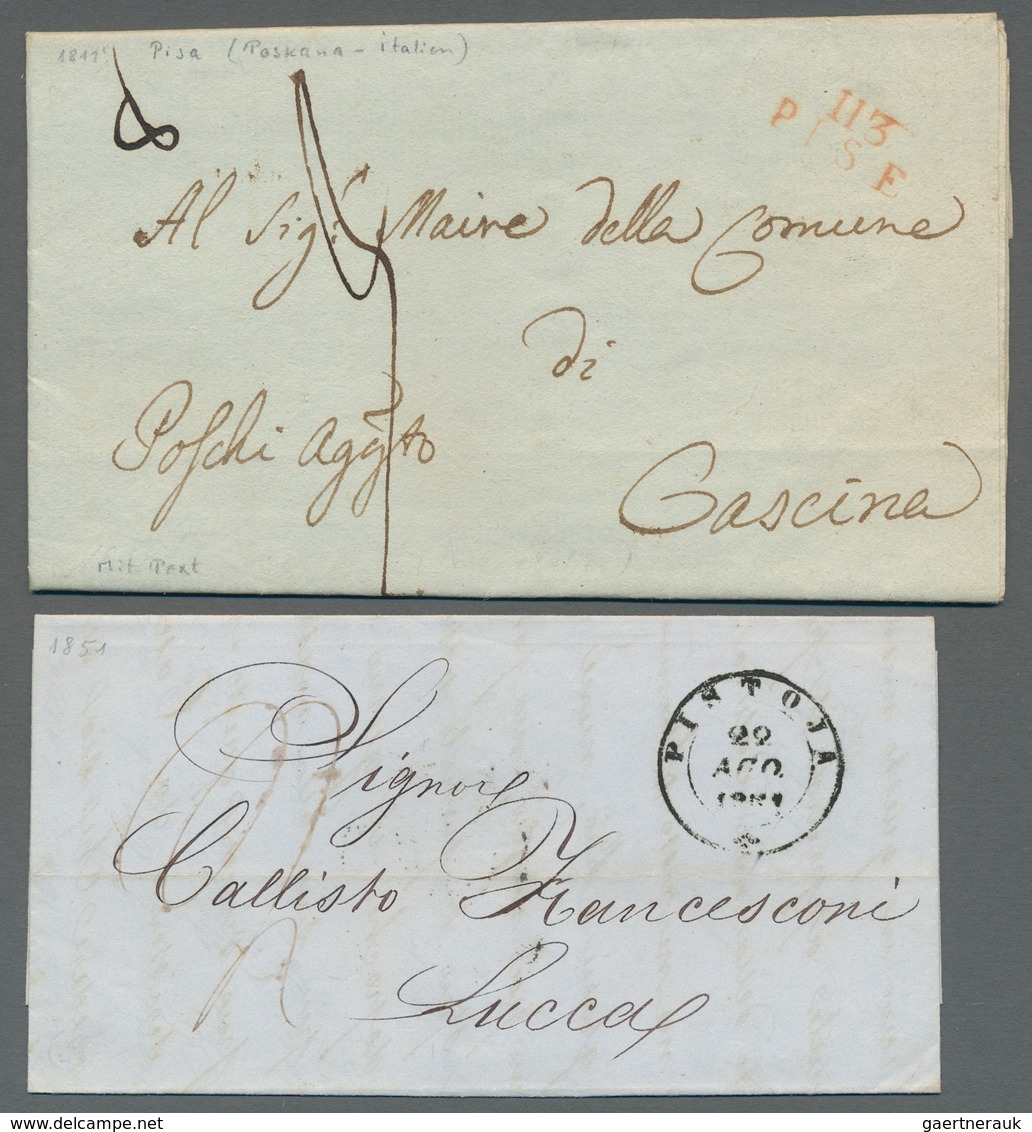 1811 Pisa (Toskana - italien)
8
113
P ISE
Al Sig.r Maire della Comune
di
Poschi Aggto
Cascina
Mit Text
1851
PISTOJA
22
AGO.
1851
Signore
Callisto Francesconi
Lucca
gaertnerauk